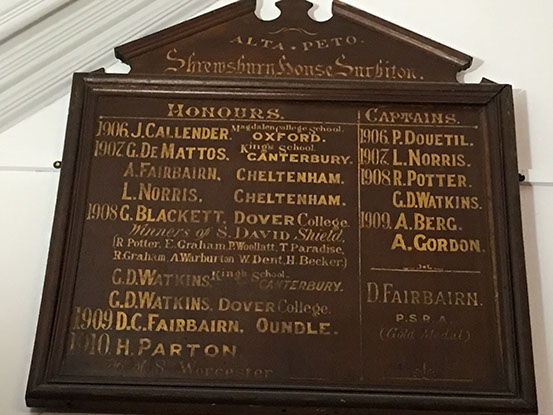 ALTA · PETO.
Shrewsbury House Surbiton.
HONOURS.
1906. J. CALLENDER. Magdalen College School. OXFORD.
1907. G. DE MATTOS. King's School. CANTERBURY.
A. FAIRBAIRN, CHELTENHAM.
L. NORRIS, CHELTENHAM.
1908 G. BLACKETT, DOVER College.
Winners of S. DAVID Shield.
(R. Potter, E. Graham, P. Woollatt, T. Paradise,
R. Graham A. Warburton W. Dent, H. Becker.)
G.D. WATKINS. King's School. CANTERBURY.
G.D. WATKINS. DOVER College.
1909. D.C. FAIRBAIRN. OUNDLE.
1910. H. PARTON
H.M.S. Worcester
CAPTAINS.
1906. P. DOUETIL.
1907. L. NORRIS.
1908 R. POTTER.
G.D. WATKINS.
1909. A. BERG.
A. GORDON.
D. FAIRBAIRN.
P.S.R.A.
(Gold Medal)